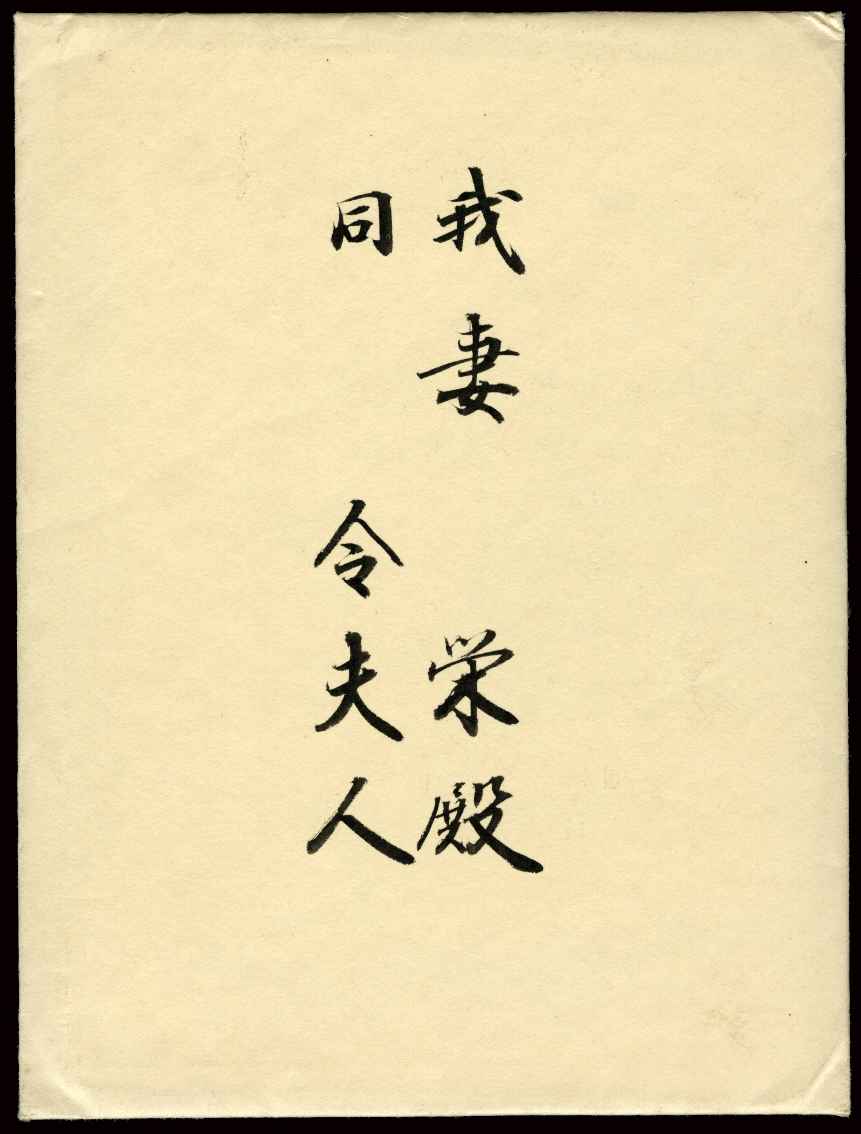 我妻 栄殿
同 令夫人